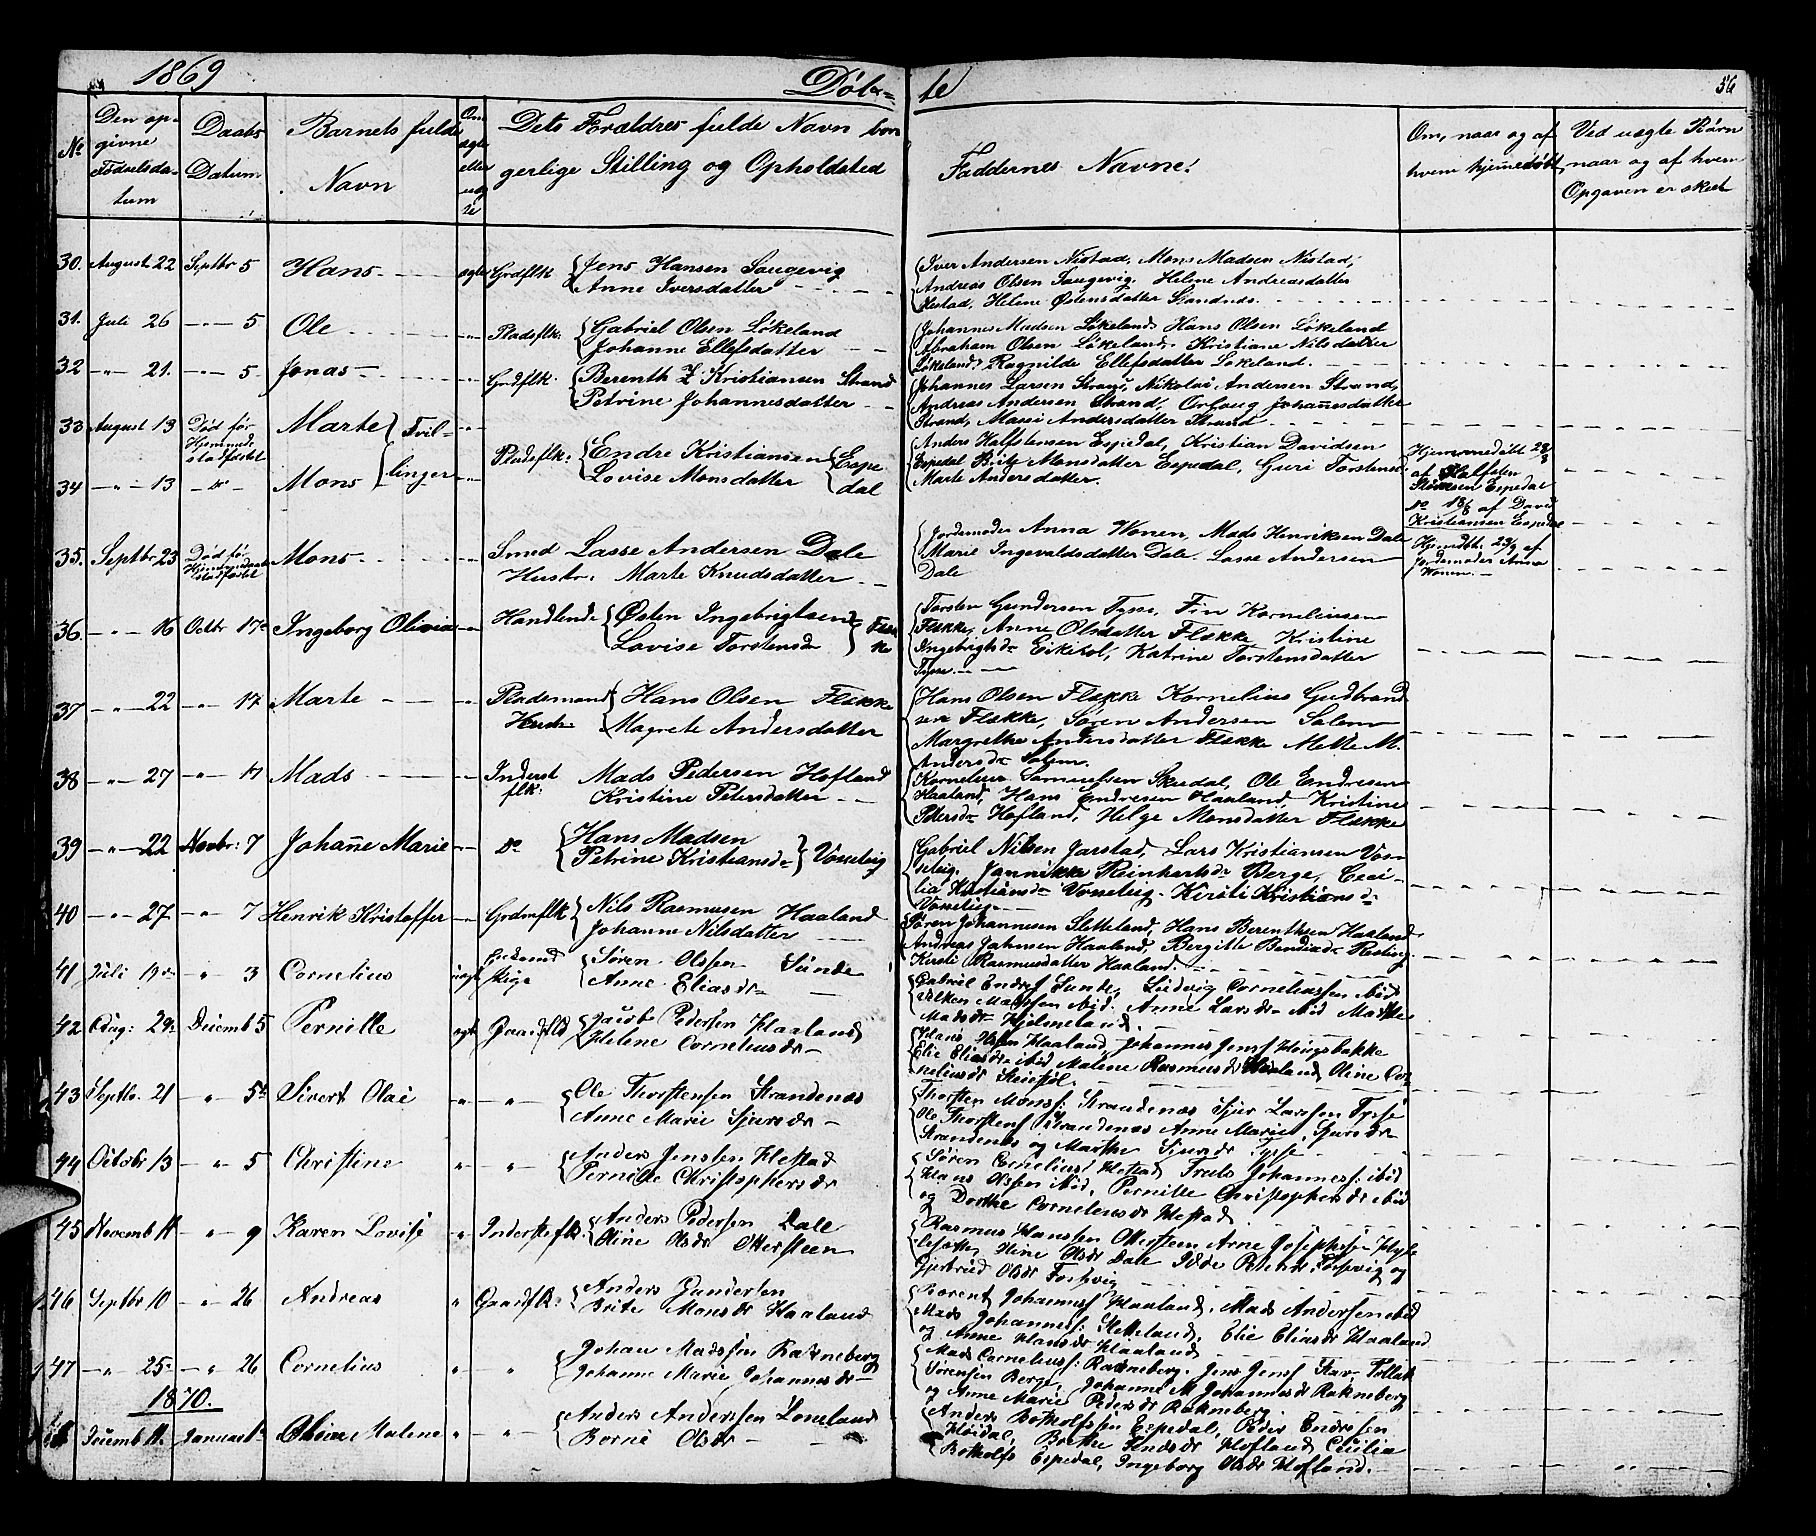 1869 Døb= te 56
No
Den op-
givne
Fødselsda-
tum
Daabs
Datum
Barnets fulde
Navn
Om
ægte
eller
uæg
te
Dets Forældres fulde Navn bor
gerlige Stilling og Opholdsted
Faddernes Navne!
Om, naar og af
hvem hjemmedøbt
Ved uægte Børn
naar og af hvem
Opgaven er skeet
30. August 22 Septbr 5 Hans ægte Grdflk. Jens Hansen Saugevig
Anne Iversdatter
Iver Andersen Nestad, Mons Madsen Nestad,
Andreas Olsen Saugevig. Helene Andreasdatter
Nestad, Helene Østensdatter Sandnes.
31. Juli 26 -"- 5 Ole -"- Pladsflk. Gabriel Olsen Løkeland
Johanne Ellefsdatter
Johannes Madsen Løkeland, Hans Olsen Løkeland
Abraham Olsen Løkeland. Kristiane Nilsdatter
Løkeland, Ragnilde Ellefsdatter Løkeland.
32 -"- 21. -"- 5. Jonas -"- Grdflk. Berenth Z Kristiansen Strand
Petrine Johannesdatter
Johannes Larsen Strand, Nikolai Andersen Strand,
Andreas Andersen Strand, Johannesdatter
Strand, Mari Andersdatter Strand
33 August 13 Død før
Hjemmed.
stadfæstet Marte Tvil- -"-
Pladsflk: Endre Kristiansen Espe
Lovise Monsdatter dal
Anders Halfstensen Espedal, Kristian Davidsen
Espedal Brite Monsdatter Espedal, Guri Torstensd.
Marte Andersdatter.
Hjemmedøbt 23/8
af Halfsten
Espedal
34 -"- 13 -"- Mons linger -"-
do 18/8 af David
Kristiansen Espedal
35. Septbr 23 Død før
Hjemmedaab
stadfæstet Mons -"- Smed Lasse Andersen Dale
Hustr. Marte Knudsdatter
Jordemoder Anna Wonen, Mads Henriksen Dale
Marie Ingevaldsdatter Dale. Lasse Andersen
Dale
Hjemdbt. 23/9 af
Jordemoder Anna
Wonen.
36. -"- 16 Octbr 17de Ingeborg Olivia -"- Handlende Østen Ingebrigtsen Flek
Lovise Torstensdr ke
Torsten Gundersen Tysse, Fin Kornelius
Flekke, Anne Olsdatter Flekke Kristine
Ingebrigtsdr Eikebol, Katrine Torstensdatter
Tysse.
37 -"- 22 -"- 17 Marte -"- Pladsmand Hans Olsen Flekke
Hust. Magrete Andersdatter
Hans Olsen Flekke Kornelius Gudbrand
sen Flekke, Søren Andersen Salem
Margrethe Andersdatter Flekke Mette M.
Andersdr Salem.
38 -"- 27 -"- 17 Mads -"- Inderst
flk: Mads Pedersen Hofland
Kristine Petersdatter
Kornelius Samuelsen Skredal, Ole Endresen
Haaland, Hans Endresen Haaland, Kristine
Petersdr Hofland, Helge Monsdatter Flekke
39 -"- 22 Novbr: 7 Johañe Marie -"- do Hans Madsen
Petrine Kristiansdr Vosseteig
Gabriel Nilsen Jarstad, Lars Kristiansen Vos-
seteig. Jannikke Reinhertsdr Berge, Ceci-
lia Kristiansdr Vosseteig. Kirsti Kristiansdr
Vosseteig
40 -"- 27 -"- 7 Henrik Kristoffer -"- Grdmflk Nils Rasmusen Haaland
Johanne Nilsdatter
Søren Johannesen Sletteland, Hans Berenthsen Haaland
Andreas Jahnsen Haaland, Bergitte
Kirsti Rasmusdatter Haaland.
41 Juli 19de " 3 Cornelius uægt Søren Olssen Sunde
pige Anne Eliasdr
Gabriel Endres. Sunde, Ludvig Corneliussen ibid
Madssen ibid. Anne Larsdr ibid Marthe
Madsdr Hjelmeland.
42 29de Decemb 5 Pernille ægt Gaardflk Jacob Pedersen Haaland
Helene Corneliusdr
Hans Olssen Haaland Johannes Jenss Høugsbakke
Elie Eliasdr ibid Malene Rasmusdr Haaland, Oline Cor-
neliusdr Steisøl.
43 Septbr. 21 " 5te Sivert Olai " " Ole Thorstensen Strandenæs
Anne Marie Sjursdr
Thorsten Monss. Strandenæs Sjur Larssen Tysse
Ole Thorstens. Strandenæs Anne Marie Sjursdr
Strandenæs og Marthe Sjursdr Tysse
44 Octobr 13 -"- 5 Christine " " Anders Jenssen Hestad
Pernille Christophersdr
Søren Cornelius. Hestad Truls Johanness: ibid
Hans Olssen ibid, Pernille Christophersdr ibid
og Dorthe Corneliusdr Hestad
45 Novemb 11 " 9 Karen Lovise " Inderstsflk. Anders Pedersen Dale
Oline Olsdr Ottersteen
Rasmus Hanssen Ottersteen Arne Josephsen Hyle
Oline Olsdr Dale Pedersdr og
Gjertrud Olsdr
46 Septbr 10 -"- 26 Andreas " Gaardflk: Anders Gundersen
Brite Monsdr Haaland
Berent Johanness Haaland. Mads Anderssen ibid
Mads Johanness: Sletteland, Elie Eliasdr Haaland
og Anne Hansdr Haaland
47 -"- 25de -"- 26 Cornelius " " Johan Madssen Rakneberg
Johanne Marie Johannesdr
Mads Corneliuss: Rakneberg. Jens Jenss
Sørensen Berge, Johanne M Johannesdr Rakneberg
og Anne Marie Pedersdr Rakneberg
1870.
Decemb 11. Januar 1ste Malene " -"- Anders Anderssen Loneland
Borni Olsdr
Anders Botholfssen Espedal, Peder Endressen
Høidal, Berthe Hofland Cicilia
Botholfs Espedal, Ingeborg Olsdr Hofland.